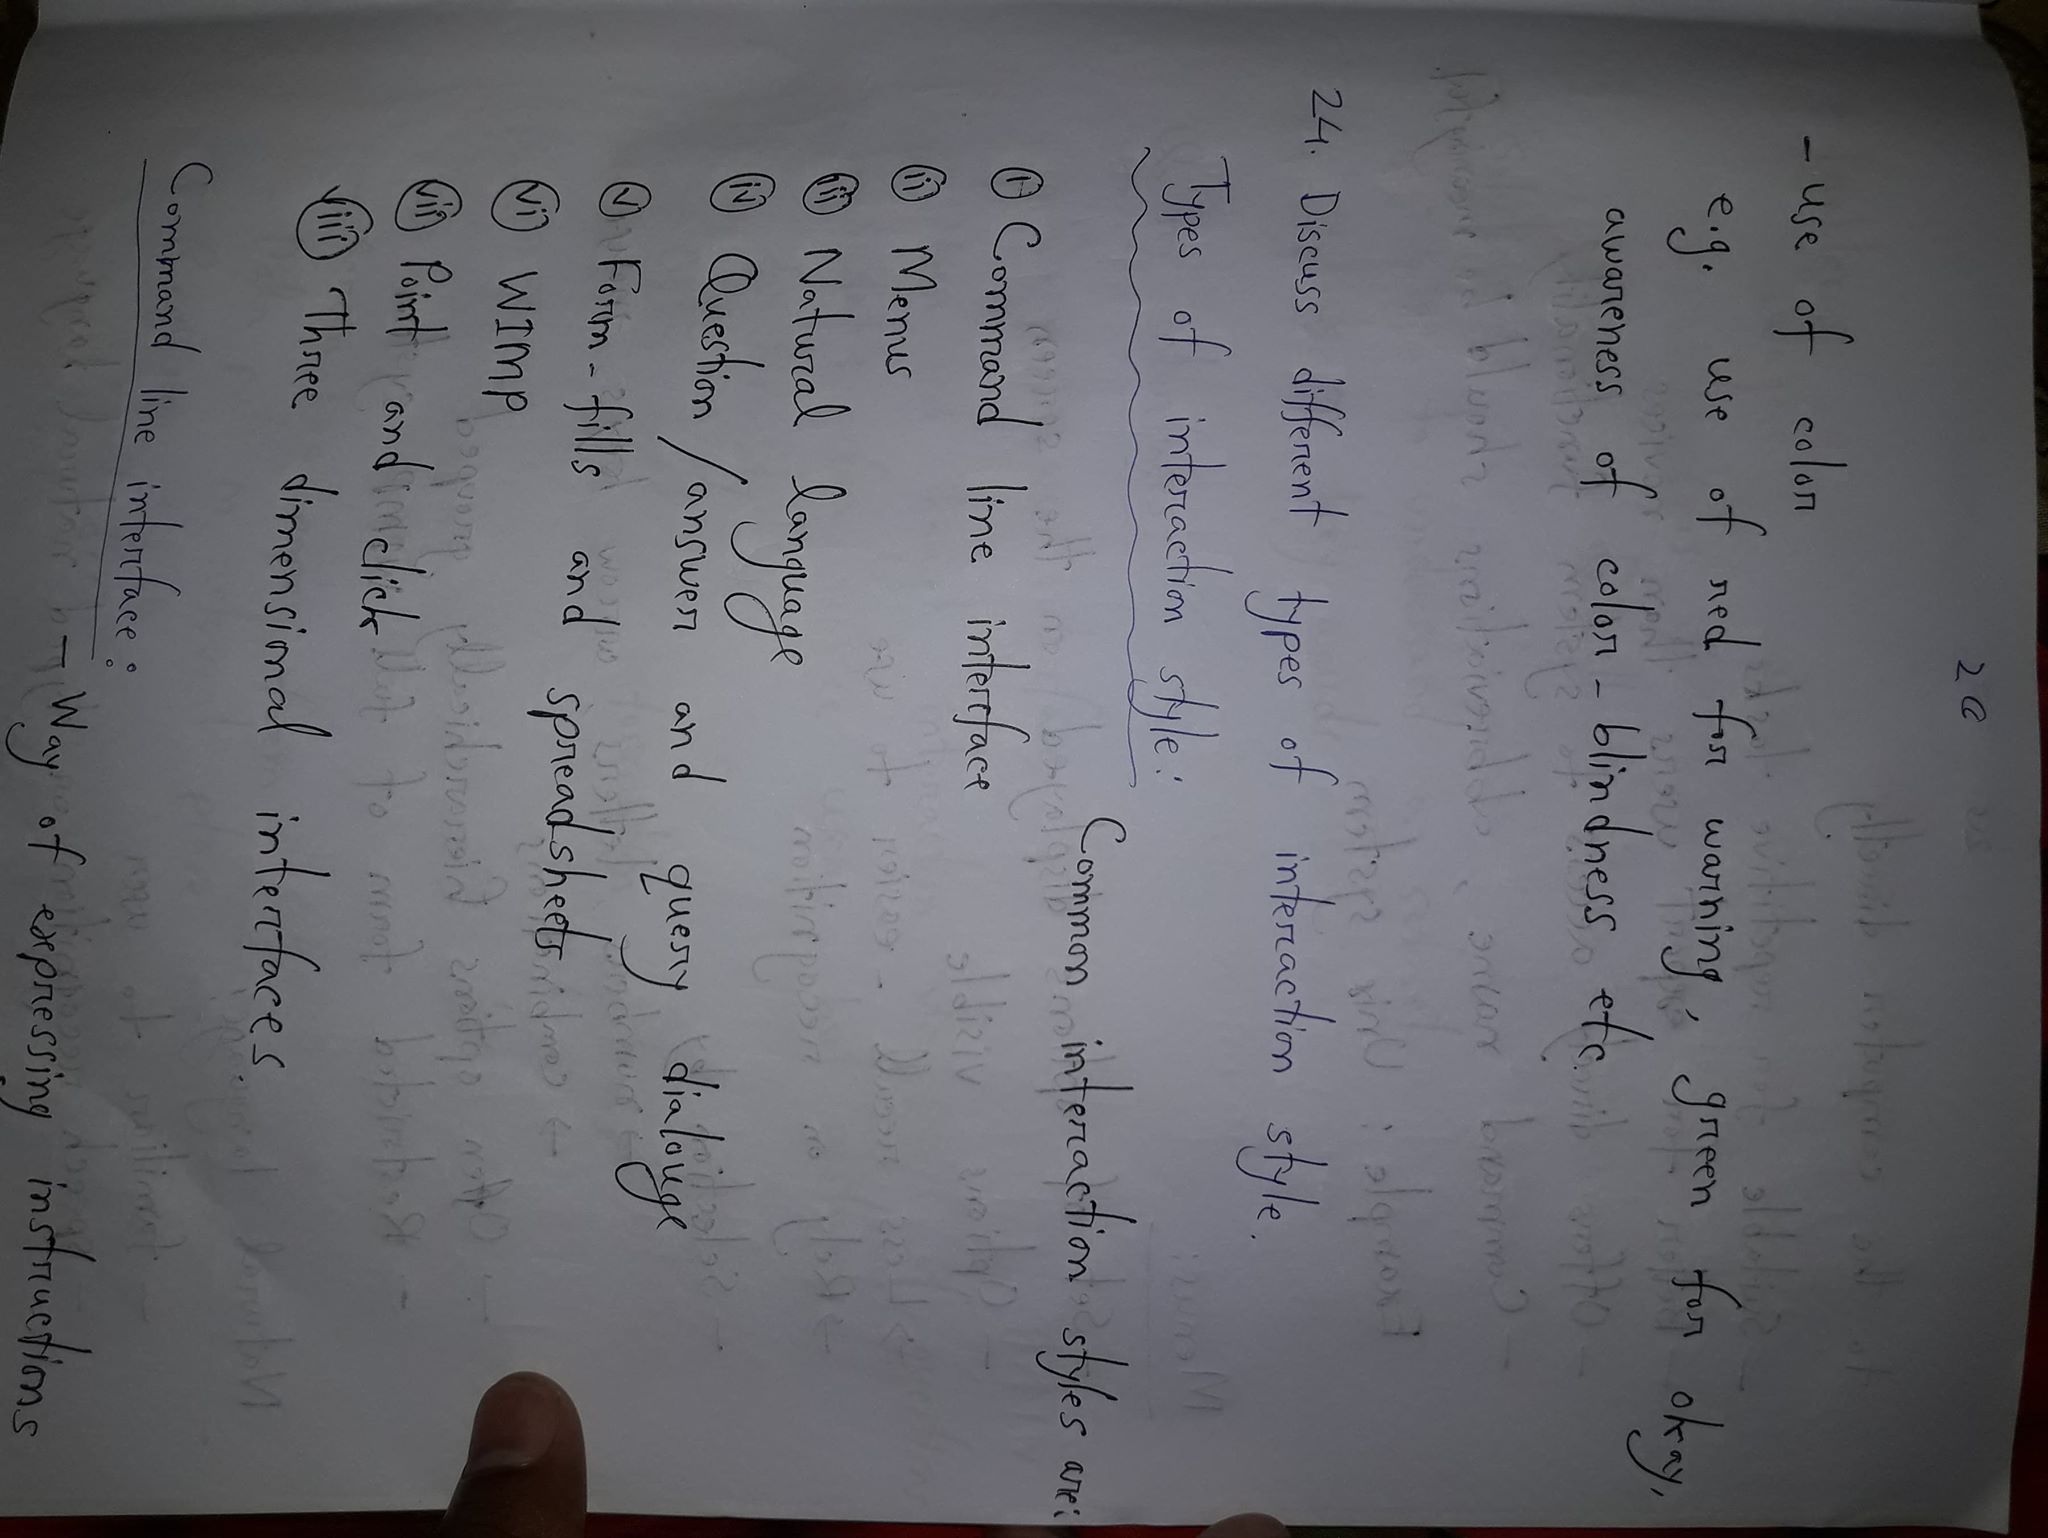 26
- use of color
e.g. use of red for warning, green for okay,
awareness of color-blindness etc.
24. Discuss different types of interaction style.
Types of interaction style:
Common interaction styles are:
i Command line interface
ii Menus
iii Natural language
iv Question/answer and query dialouge
v Form-fills and spreadsheets
vi WIMP
vii Point and click
viii Three dimensional interfaces.
Command line interface:
- Way of expressing instructions